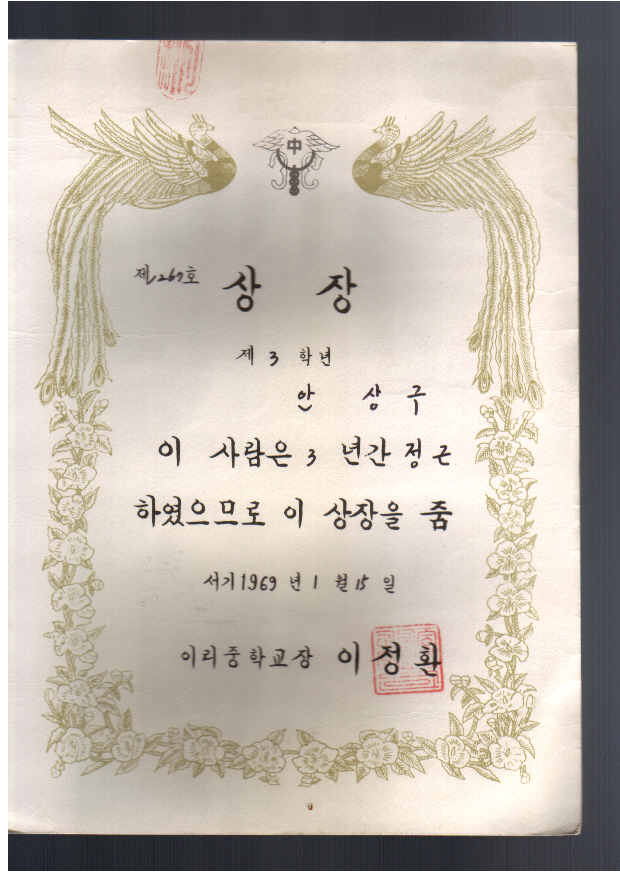 中
제1267호 상 장
제 3 학년
안 상 구
이 사람은 3 년간 정근
하였으므로 이 상장을 줌
서기 1969 년 1 월 15 일
이리중학교장 이정환